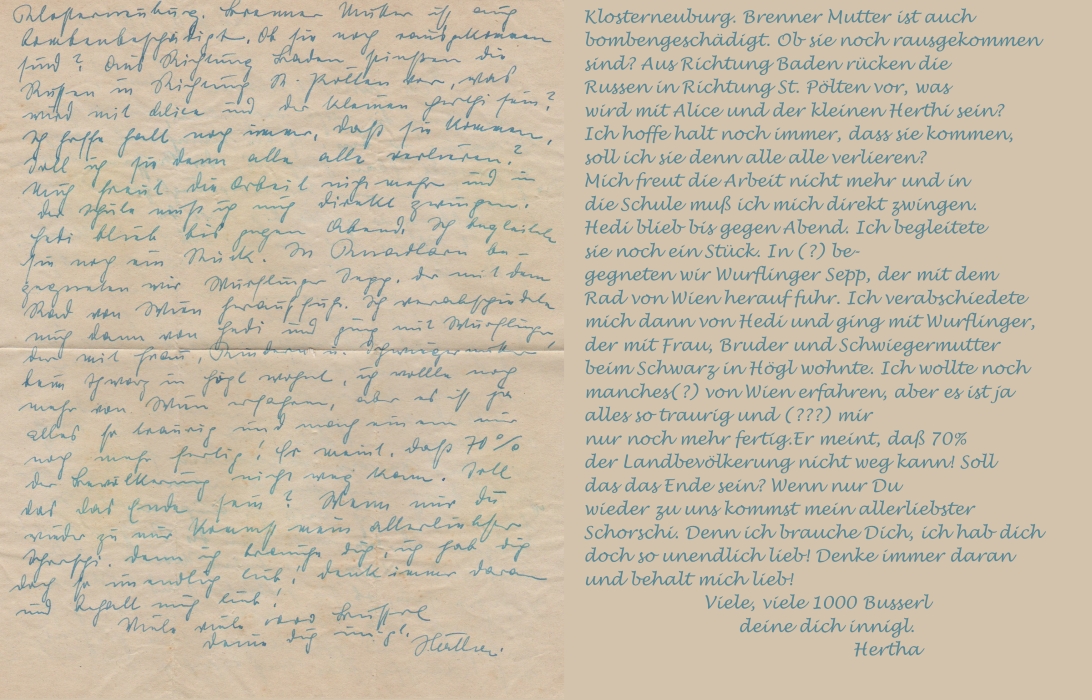 Klosterneuburg. Brenner Mutter ist auch
bombenbeschädigt. Ob sie noch rausgekommen
sind? Aus Richtung Baden stoßen die
Russen in Richtung St. Pölten vor, was
wird mit Alice und der kleinen Herthi sein?
Ich hoffe halt noch immer, daß sie kommen,
soll ich sie denn alle alle verlieren?
Mich freut die Arbeit nicht mehr und in
die Schule muß ich mich direkt zwingen.
Hedi blieb bis gegen Abend. Ich begleitete
sie noch ein Stück. In be-
gegneten wir Wurflinger Sepp, der mit dem
Rad von Wien herauffuhr. Ich verabschiedete
mich dann von Hedi und ging mit Wurflinger
der mit Frau, Kindern u. Schwiegermutter
beim Schwarz in Högl wohnt, ich wollte noch
mehr von Wien erfahren, aber es ist ja
alles so traurig und macht einem nur
noch mehr fertig! Er meint, daß 70%
der Bevölkerung nicht weg kann. Soll
das das Ende sein? Wenn nur du
wieder zu mir kommst mein allerliebster
Schorschi. denn ich brauche dich, ich hab dich
doch so unendlich lieb! denk immer daran
und behalt mich lieb!
Viele viele 1000 Busserl
deine dich innigl.
Klosterneuburg. Brenner Mutter ist auch
bombengeschädigt. Ob sie noch rausgekommen
sind? Aus Richtung Baden rücken die
Russen in Richtung St. Pölten vor, was
wird mit Alice und der kleinen Herthi sein?
Ich hoffe halt noch immer, dass sie kommen,
soll ich sie denn alle alle verlieren?
Mich freut die Arbeit nicht mehr und in
die Schule muß ich mich direkt zwingen.
Hedi blieb bis gegen Abend. Ich begleitete
sie noch ein Stück. In (?) be-
gegneten wir Wurflinger Sepp, der mit dem
Rad von Wien herauf fuhr. Ich verabschiedete
mich dann von Hedi und ging mit Wurflinger,
der mit Frau, Bruder und Schwiegermutter
beim Schwarz in Högl wohnte. Ich wollte noch
manches(?) von Wien erfahren, aber es ist ja
alles so traurig und (???) mir
nur noch mehr fertig.Er meint, daß 70%
der Landbevölkerung nicht weg kann! Soll
das das Ende sein? Wenn nur Du
wieder zu uns kommst mein allerliebster
Schorschi. Denn ich brauche Dich, ich hab dich
doch so unendlich lieb! Denke immer daran
und behalt mich lieb!
Viele, viele 1000 Busserl
deine dich innigl.
Hertha